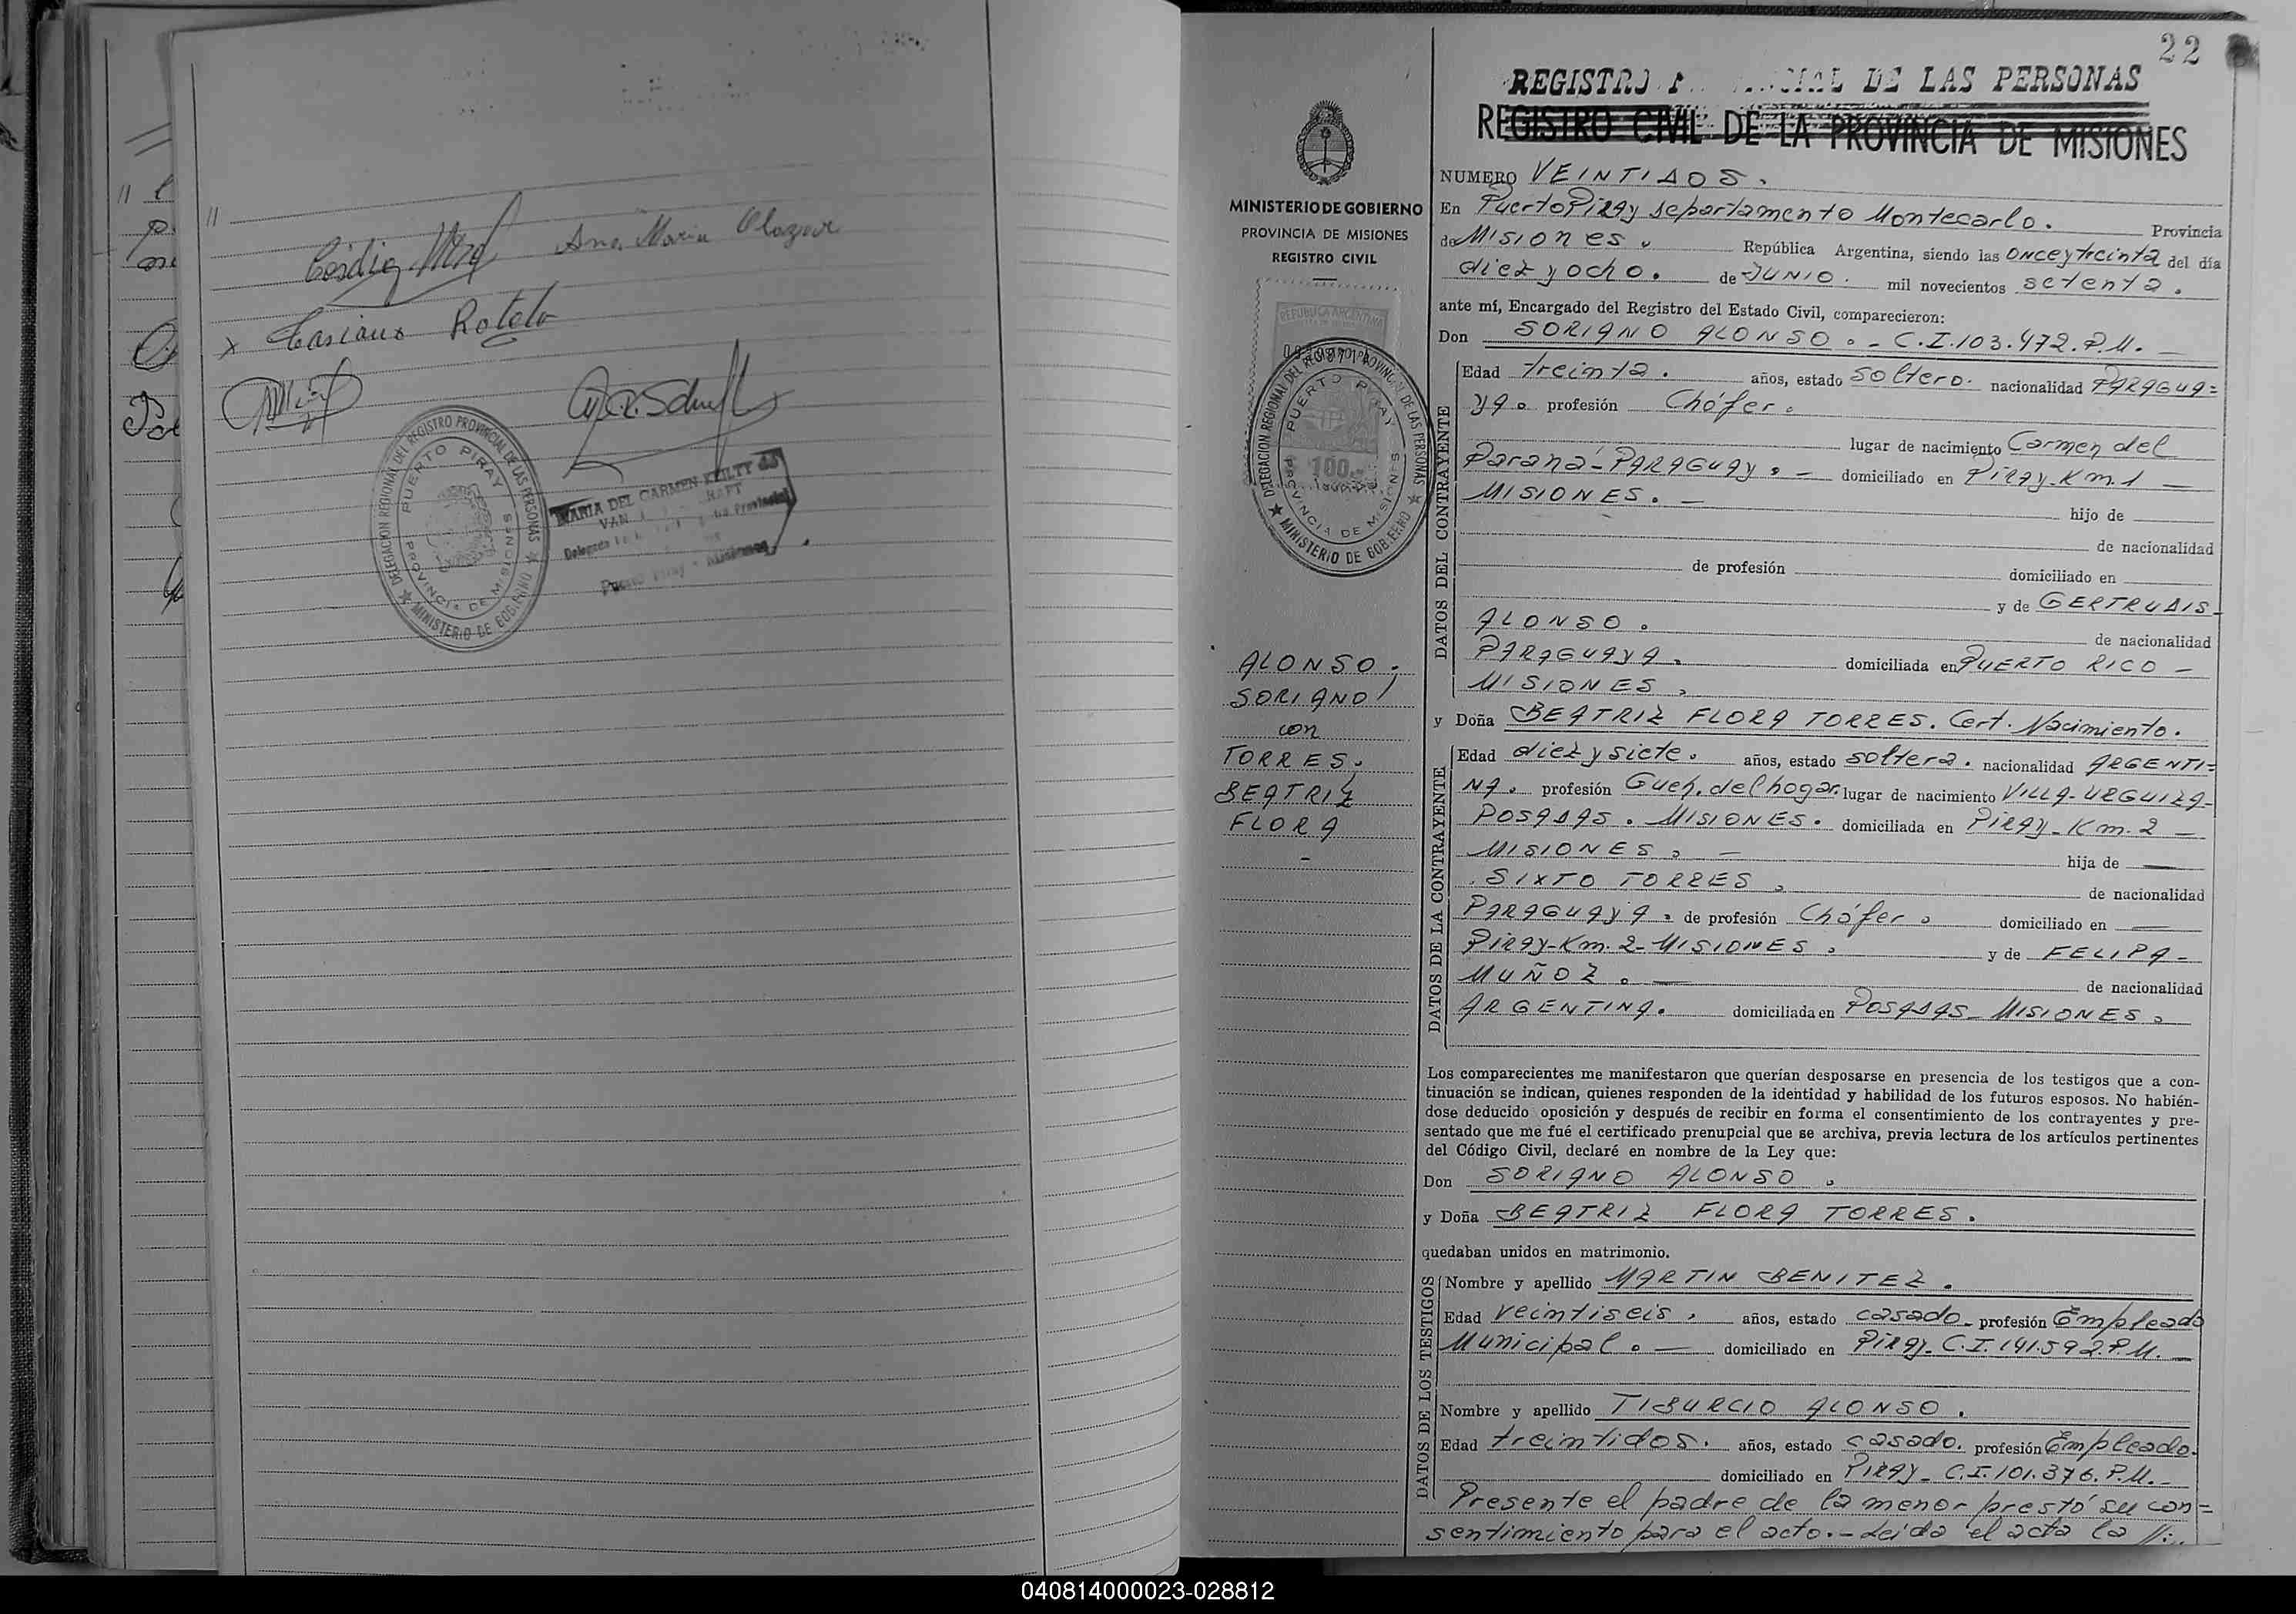 //
Ana Maria Olazar
x Casiano Rotela
DELEGACION REGIONAL DEL REGISTRO PROVINCIAL DE LAS PERSONAS
PUERTO PIRAY
PROVINCIA DE MISIONES
★ MINISTERIO DE GOBIERNO ★
MARIA DEL CARMEN
VAN
22
REGISTRO DE LAS PERSONAS
REGISTRO CIVIL DE LA PROVINCIA DE MISIONES
MINISTERIO DE GOBIERNO
PROVINCIA DE MISIONES
REGISTRO CIVIL
REPUBLICA ARGENTINA
100
DELEGACION REGIONAL DEL REGISTRO PROVINCIAL DE LAS PERSONAS
PUERTO PIRAY
PROVINCIA DE MISIONES
★ MINISTERIO DE GOBIERNO ★
ALONSO,
SORIANO
con
TORRES.
BEATRIZ
FLORA
-
NUMERO VEINTIDOS.
En Puerto Piray departamento Montecarlo. Provincia
de Misiones. República Argentina, siendo las once y treinta del día
diez y ocho. de JUNIO. mil novecientos setenta.
ante mí, Encargado del Registro del Estado Civil, comparecieron:
Don SORIANO ALONSO.- C.I.103.472.P.M.
DATOS DEL CONTRAYENTE
Edad treinta. años, estado soltero. nacionalidad PARAGUA=
YA. profesión Chófer.
lugar de nacimiento Carmen del
Paraná-PARAGUAY.- domiciliado en Piray-Km.1
MISIONES.- hijo de
de nacionalidad
de profesión domiciliado en
y de GERTRUDIS-
ALONSO. de nacionalidad
PARAGUAYA. domiciliada en PUERTO RICO -
MISIONES.
y Doña BEATRIZ FLORA TORRES. Cert. Nacimiento.
DATOS DE LA CONTRAYENTE
Edad diez y siete. años, estado soltera. nacionalidad ARGENTI=
NA. profesión Queh. del hogar. lugar de nacimiento VILLA-URQUIZA-
POSADAS. MISIONES. domiciliada en Piray-Km.2 -
MISIONES.- hija de
SIXTO TORRES. de nacionalidad
PARAGUAYA. de profesión Chófer. domiciliado en
Piray-Km.2-MISIONES. y de FELIPA-
MUÑOZ. de nacionalidad
ARGENTINA. domiciliada en POSADAS-MISIONES.
Los comparecientes me manifestaron que querían desposarse en presencia de los testigos que a con-
tinuación se indican, quienes responden de la identidad y habilidad de los futuros esposos. No habién-
dose deducido oposición y después de recibir en forma el consentimiento de los contrayentes y pre-
sentado que me fué el certificado prenupcial que se archiva, previa lectura de los artículos pertinentes
del Código Civil, declaré en nombre de la Ley que:
Don SORIANO ALONSO.
y Doña BEATRIZ FLORA TORRES.
quedaban unidos en matrimonio.
DATOS DE LOS TESTIGOS
Nombre y apellido MARTIN BENITEZ.
Edad veintiseis. años, estado casado- profesión Empleado
Municipal.- domiciliado en Piray- C.I.141.592.P.M.
Nombre y apellido TIBURCIO ALONSO.
Edad treintidos. años, estado casado. profesión Empleado.
domiciliado en Piray- C.I.101.376.P.M.-
Presente el padre de la menor prestó su con=
sentimiento para el acto.- Leida el acta la //:
040814000023-028812